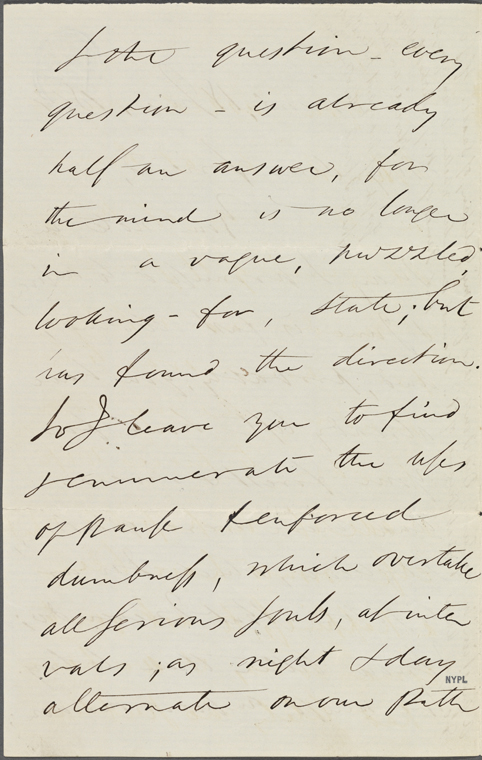 & the question - every
question - is already
half an answer, for
the mind is no longer
in a vague, puzzled,
looking-for, state; but
has found the direction.
So I leave you to find
& enumerate the uses
of pause & enforced
dumbness, which overtake
all serious souls, at inter
vals; as night & day
alternate on our path
NYPL